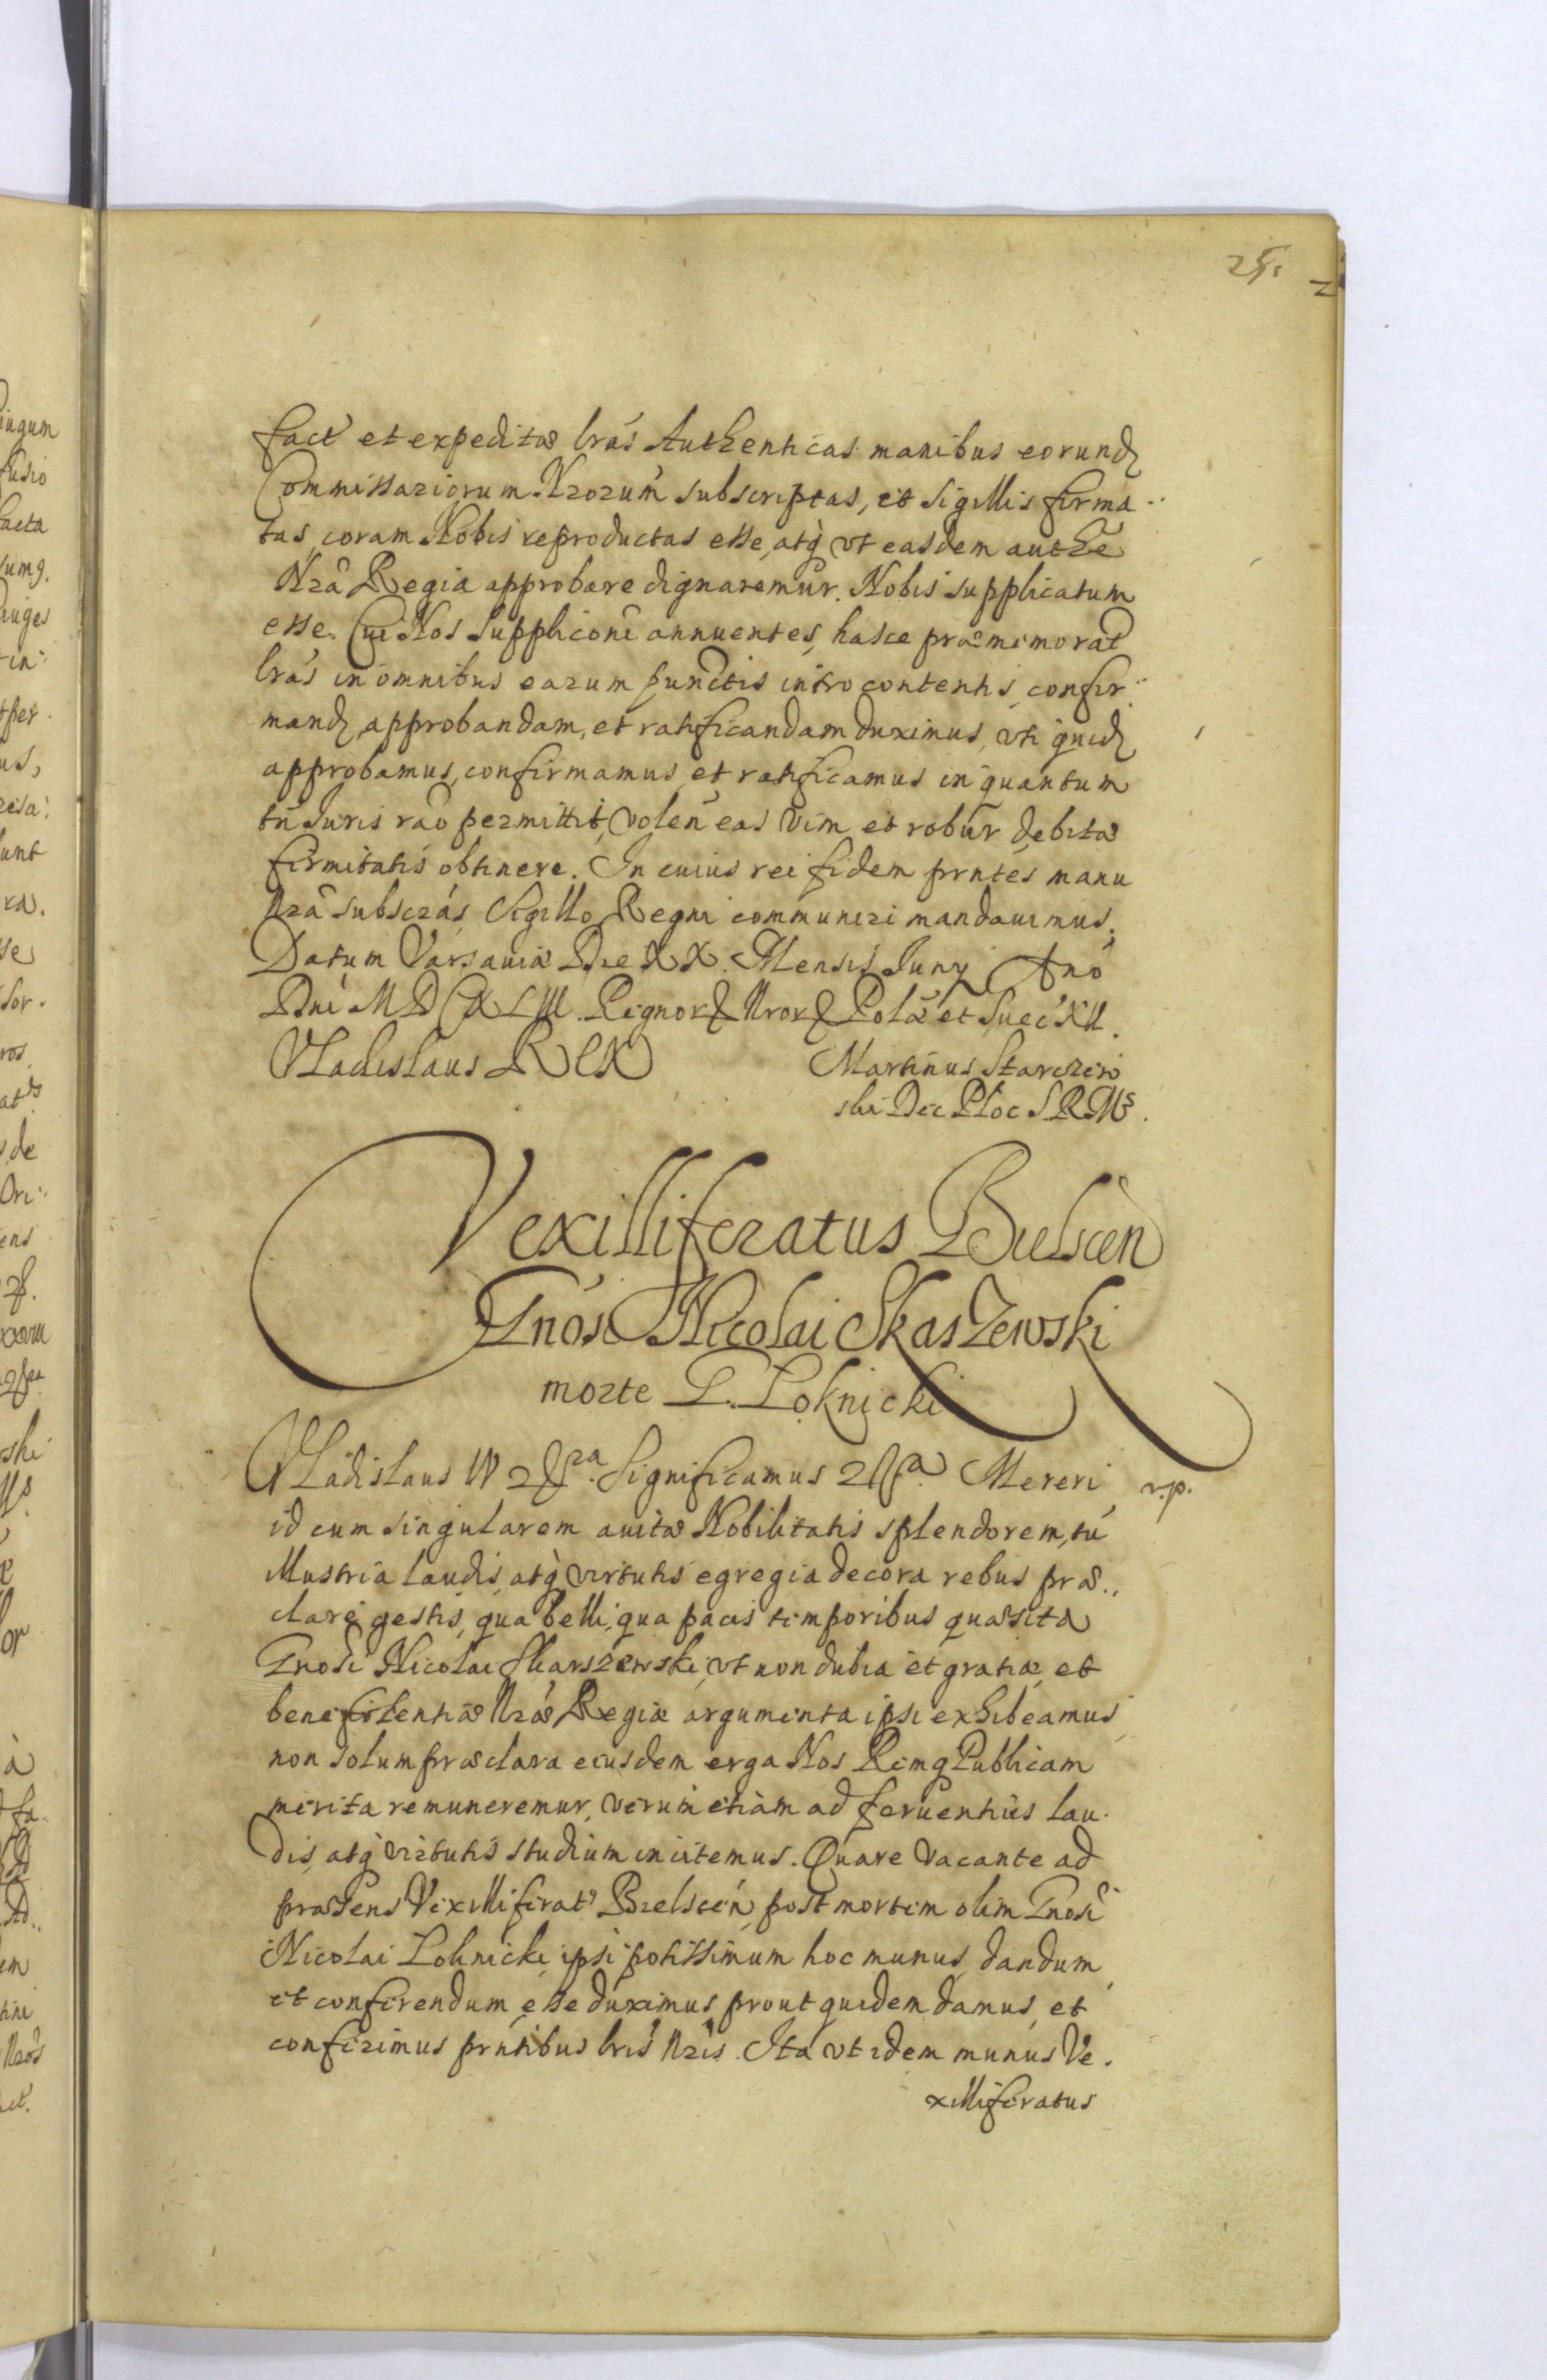 25.
fact et expeditæ lrás Authenticas manibus eorund
Commissariorum Nrorum subscriptas, et Sigillis firma
tas, coram Nobis reproductas esse, atq̀ vt easdem authẽ
Nrâ Regia approbare dignaremur. Nobis supplicatum
esse. Cui Nos Supplicõni annuentes, hasce præmemorat
lrás in omnibus earum punctis intro contentis, confir
mand, approbandam, et ratificandam duximus, vti quid
approbamus, confirmamus, et ratificamus in quantum
tñ Iuris raõ permittit, volen̄ eas vim et robur debitæ
firmitatis obtinere. In cuius rei fidem prntés manu
Nrâ subscrás, Sigillo Regni communiri mandauimus.
Datum Varsauiæ Die XX. Mensis Juny Anõ
Dni M D C X L III. Regnor Nror Polæ et Suec XII.
Vladislaus REX
Martinus Starczew
ski Dec Ploc S R Ms.
Vexilliferatus Bielscen
Gnósi Nicolai Skaszewski
morte G. Łoknicki
Vladislaus IV Significamus Mereri
r.p.
id cum singularem auitæ Nobilitatis splendorem, tú
illustria laudis, atq̀ virtutis egregia decora rebus præ
claré gestis, qua belli, qua pacis temporibus quæsita
Gnosi Nicolai Skarszewski, vt non dubia et gratiæ, et
beneficentiæ Nræ Regiæ argumenta ipsi exhibeamus,
non solum præclara eiusdem erga Nos Remq Publicam
merita remuneremur, verum etiam ad feruentius lau
dis, atq̀ virtutis studium incitemus. Quare vacante ad
præsens Vexilliferat Bielscén, post mortem olim Gnosi
Nicolai Loknicki, ipsi potissimum hoc munus, dandum,
et conferendum esse duximus, prout quidem damus, et
conferimus prntibus lris Nris. Ita vt idem munus Ve
xilliferatus